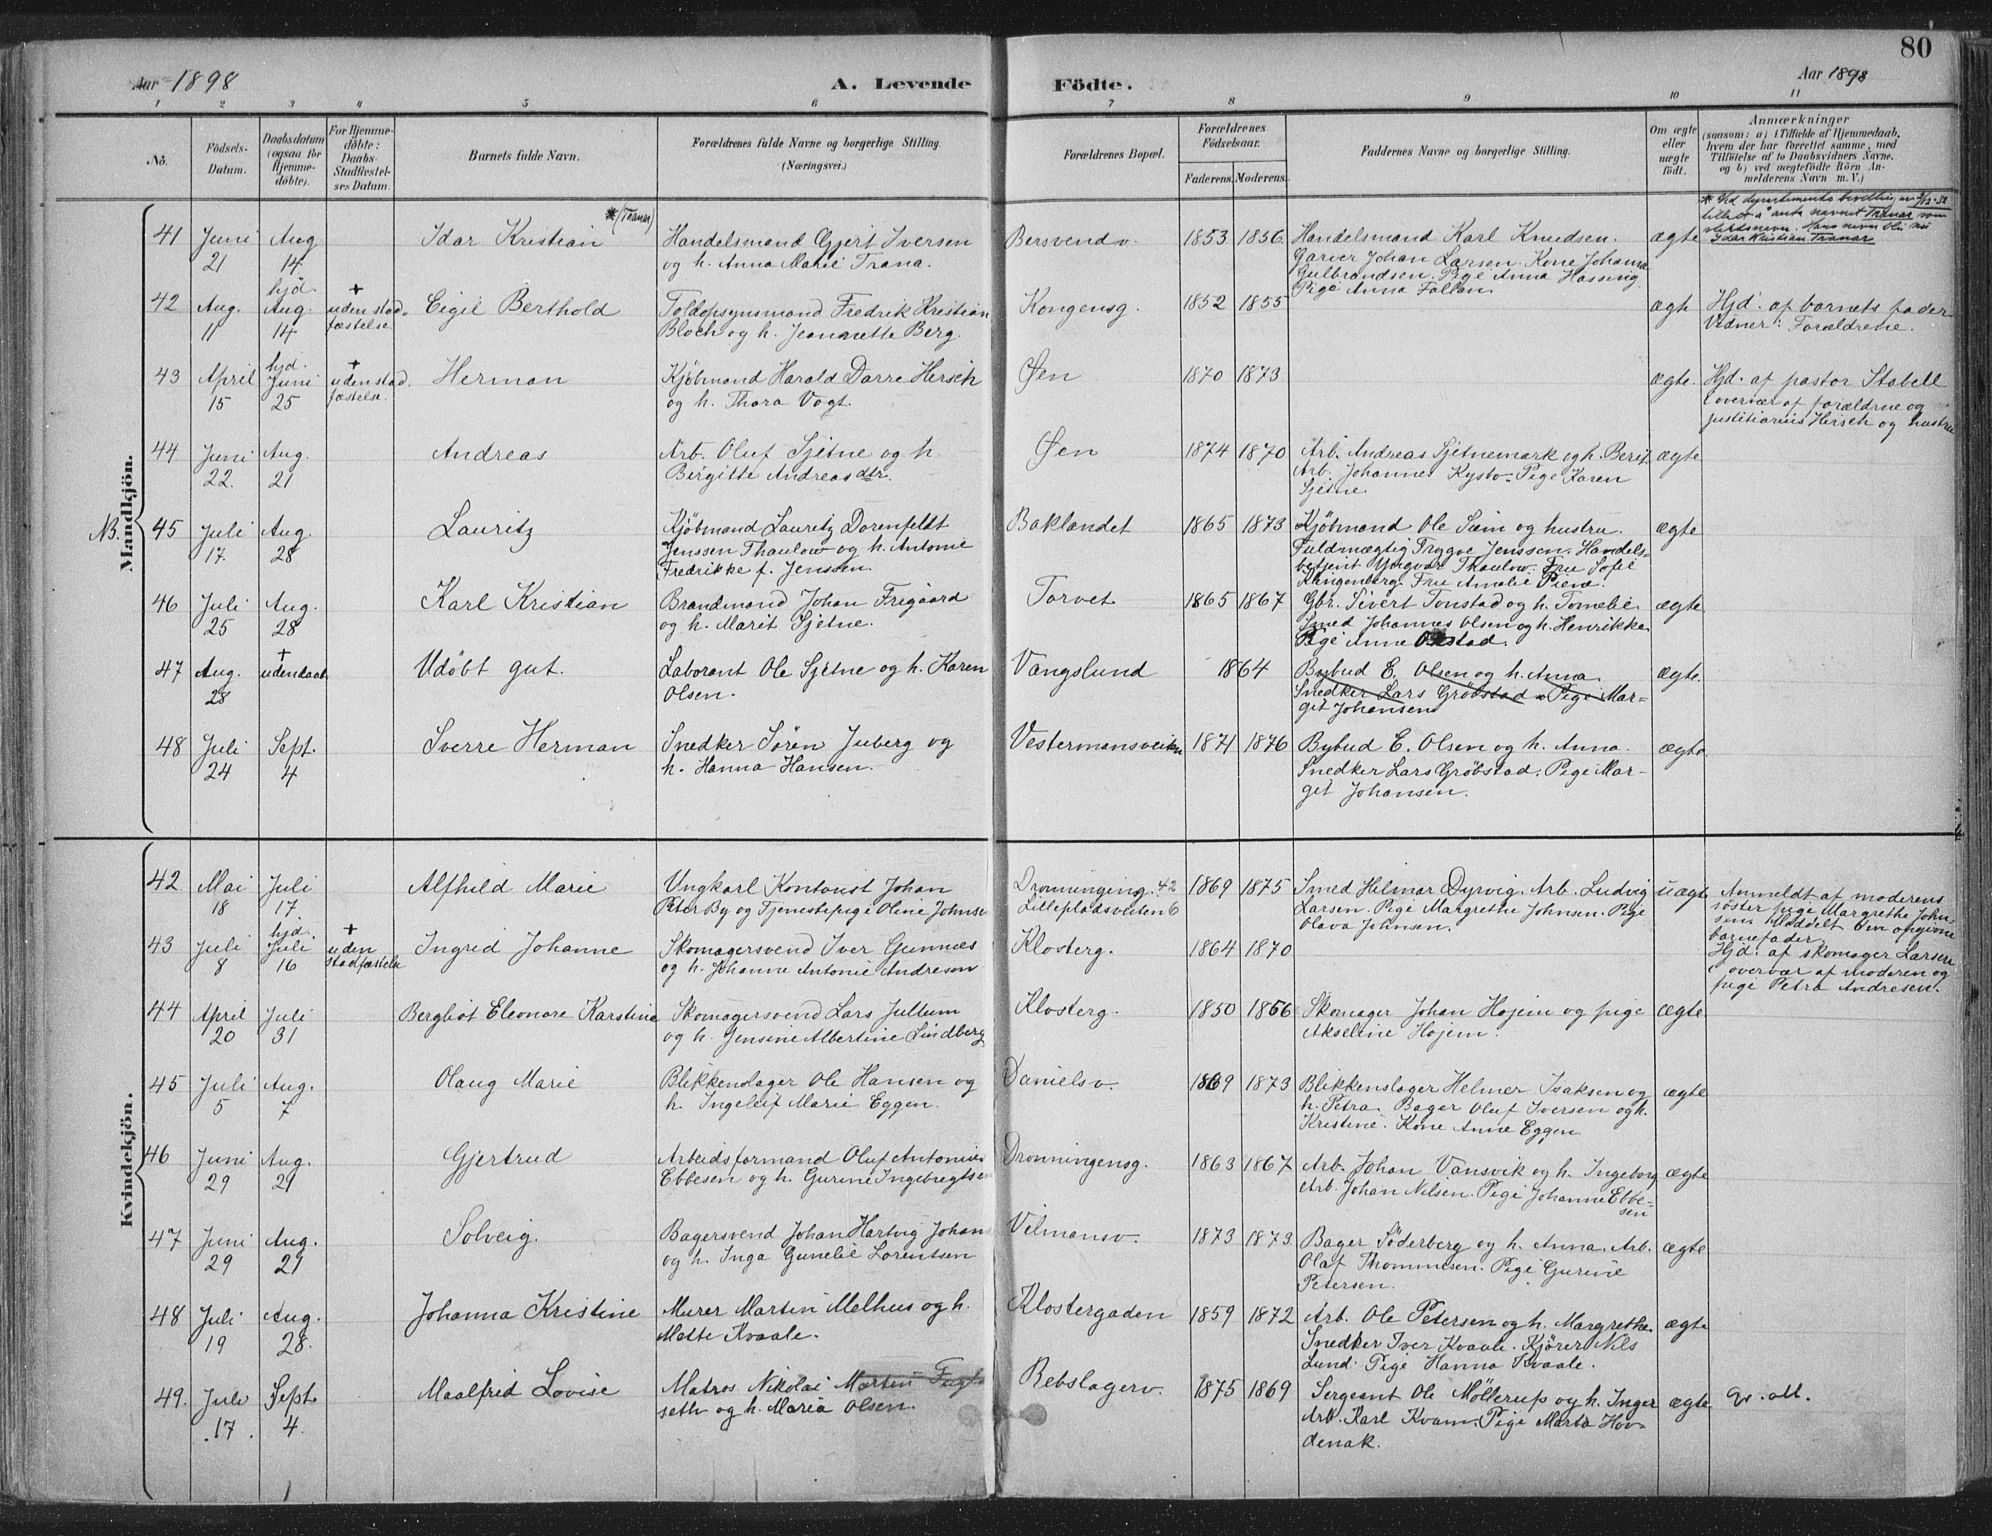 80
Aar 1898
A. Levende Födte.
Aar 1898
1 2 3 4 5 6 7 8 9 10 11
No.
Födsels-
Datum.
Daabsdatum
(ogsaa for
Hjemme-
döbte).
For Hjemme-
döbte:
Daabs-
Stadfæstel-
ses Datum.
Barnets fulde Navn.
Forældrenes fulde Navne og borgerlige Stilling.
(Næringsvei.)
Forældrenes Bopæl.
Forældrenes
Födselsaar.
Faderens. Moderens.
Faddernes Navne og borgerlige Stilling.
Om ægte
eller
uægte
födt.
Anmærkninger
(saasom: a) i Tilfælde af Hjemmedaab,
hvem der har forrettet samme, med
Tilföielse af to Daabsvidners Navne,
og b) ved uægtefödte Börn An-
melderens Navn m. V.)
Mandkjön.
41 Juni 21
Aug 14
Idar Kristian
* (Tranar)
Handelsmand Gjert Iversen
og h. Anna Marie Trana.
Bersvendv.
1853 1856
Handelsmand Karl Knudsen.
Garver Johan Larsen. Kone Johanna
Gulbrandsen. Pige Anna Hassing.
Pige Anna Follan
ægte
navnet Tranar som
slektsnavn. Hans navn blir nu
Idar Kristian Tranar
42 Aug. 11
hjd. Aug. 14
+
uden stad-
fæstelse
Eigil Berthold
Toldopsynsmand Fredrik Kristian
Bloch og h. Jeannette Berg.
Kongensg.
1852 1855
ægte
Hjd. af barnets fader
Vidner: Forældrene.
43 April 15
hjd. Juni 25
+
uden stad.
fæstelse.
Herman
Kjöbmand Harald Darre Hirsch
og h. Thora Vogt.
Øen
1870 1873
ægte.
Hjd. af pastor Stabell
i overvær af forældrene og
justitiarius Hirsch og hustru
44 Juni 22.
Aug. 21
Andreas
Arb. Oluf Sjetne og h
Birgitte Andreasdtr.
Øen
1874 1870
Arb. Andreas Sjetnemark og h. Berit.
Arb. Johannes Kysto. Pige Karen
Sjetne.
ægte
NB. 45 Juli 17.
Aug. 28
Lauritz
Kjöbmand Lauritz Dorenfeldt
Jenssen Thaulow og h. Antonie
Fredrikke f. Jenssen
Baklandet
1865 1873
Kjöbmand Ole Sæm og hustru.
Fuldmægtig Trygve Jenssen. Handels-
betjent Yngvar Thaulow. Fru Sofie
Klingenberg. Fru Amalie Piene.
ægte
46 Juli 25
Aug. 28
Karl Kristian
Brandmand Johan Frigaard
og h. Marit Sjetne.
Torvet
1865 1867
Gbr. Sivert Tonstad og h. Tomelie
Smed Johannes Olsen og h. Henrikke
Pige Anne
ægte
47 Aug. 28
+
uden daab
Udöbt gut.
Laborant Ole Sjetne og h. Karen
Olsen.
Vangslund
1864
Bybud E. Olsen og h. Anna
Snedker Lars Gröbstad. Pige Mar-
get Johansen
ægte.
48 Juli 24
Sept. 4
Sverre Herman
Snedker Sören Juberg og
h. Hanna Hansen.
Vestermansveiten
1871 1876
Bybud E. Olsen og h. Anna.
Snedker Lars Gröbstad. Pige Mar-
get Johansen.
ægte
Kvindekjön.
42 Mai 18
Juli 17
Alfhild Marie
Ungkarl Kontorist Johan
Peter By og Tjenestepige Oline Johnsen
Dronningensg. 42
Lillepladsveiten 6
1869 1875
Smed Hilmar Dyrvig. Arb. Ludvig
Larsen. Pige Margrethe Johnsen. Pige
Olava Johnsen.
uægte
Anmeldt af moderens
söster pige Margrethe John-
sen. Meddelt den opgivne
barnefader.
43 Juli 8
hjd. Juli 16
+
uden
stadfæstelse
Ingrid Johanne
Skomagersvend Iver Gunnes
og h. Johanne Antonie Andresen
Klosterg.
1864 1870
Hjd. af skomager Larsen
i overvær af moderen og
pige Petra Andresen.
44 April 20
Juli 31
Bergliot Eleonore Karstine
Skomagersvend Lars Jullum
og h. Jensine Albertine Lindberg
Klosterg.
1850 1856
Skomager Johan Hojem og pige
Akseline Hojem.
ægte
45 Juli 5
Aug. 7
Olaug Marie
Blikkenslager Ole Hansen og
h. Ingeleif Marie Eggen.
Danielsv.
1869 1873
Blikkenslager Helmer Isaksen og
h. Petra. Bager Oluf Iversen og h.
Kristine. Kone Anne Eggen
ægte
46 Juni 29
Aug. 21
Gjertrud
Arbeidsformand Oluf Antonius
Ebbesen og h. Gurine Ingebrigtsen
Dronningensg.
1863 1867
Arb. Johan Vansvik og h. Ingeborg
Arb. Johan Nilsen. Pige Johanne Ebbe-
sen
ægte
47 Juni 29
Aug. 21
Solveig.
Bagersvend Johan Hartvig Johan
og h. Inga Gunelie Lorentsen
Vilmansv.
1873 1873
Bager Söderberg og h. Anna. Arb.
Olaf Thommesen. Pige Gurine
Petersen.
ægte
48 Juli 19
Aug. 28.
Johanna Kristine
Murer Martin Melhus og h.
Mette Kvaale.
Klostergaden
1859 1872
Arb. Ole Petersen og h. Margrethe.
Snedker Iver Kvaale. Kjörer Nils
Lund. Pige Hanna Kvaale.
ægte
49. Juli 17.
Sept. 4.
Maalfrid Lovise
Matros Nikolai Martin
seth og h. Maria Olsen.
Rebslagerv.
1875 1869
Sergeant Ole Möllerup og h. Inger
Arb. Karl Kvam. Pige Marta Hov-
denak.
ægte